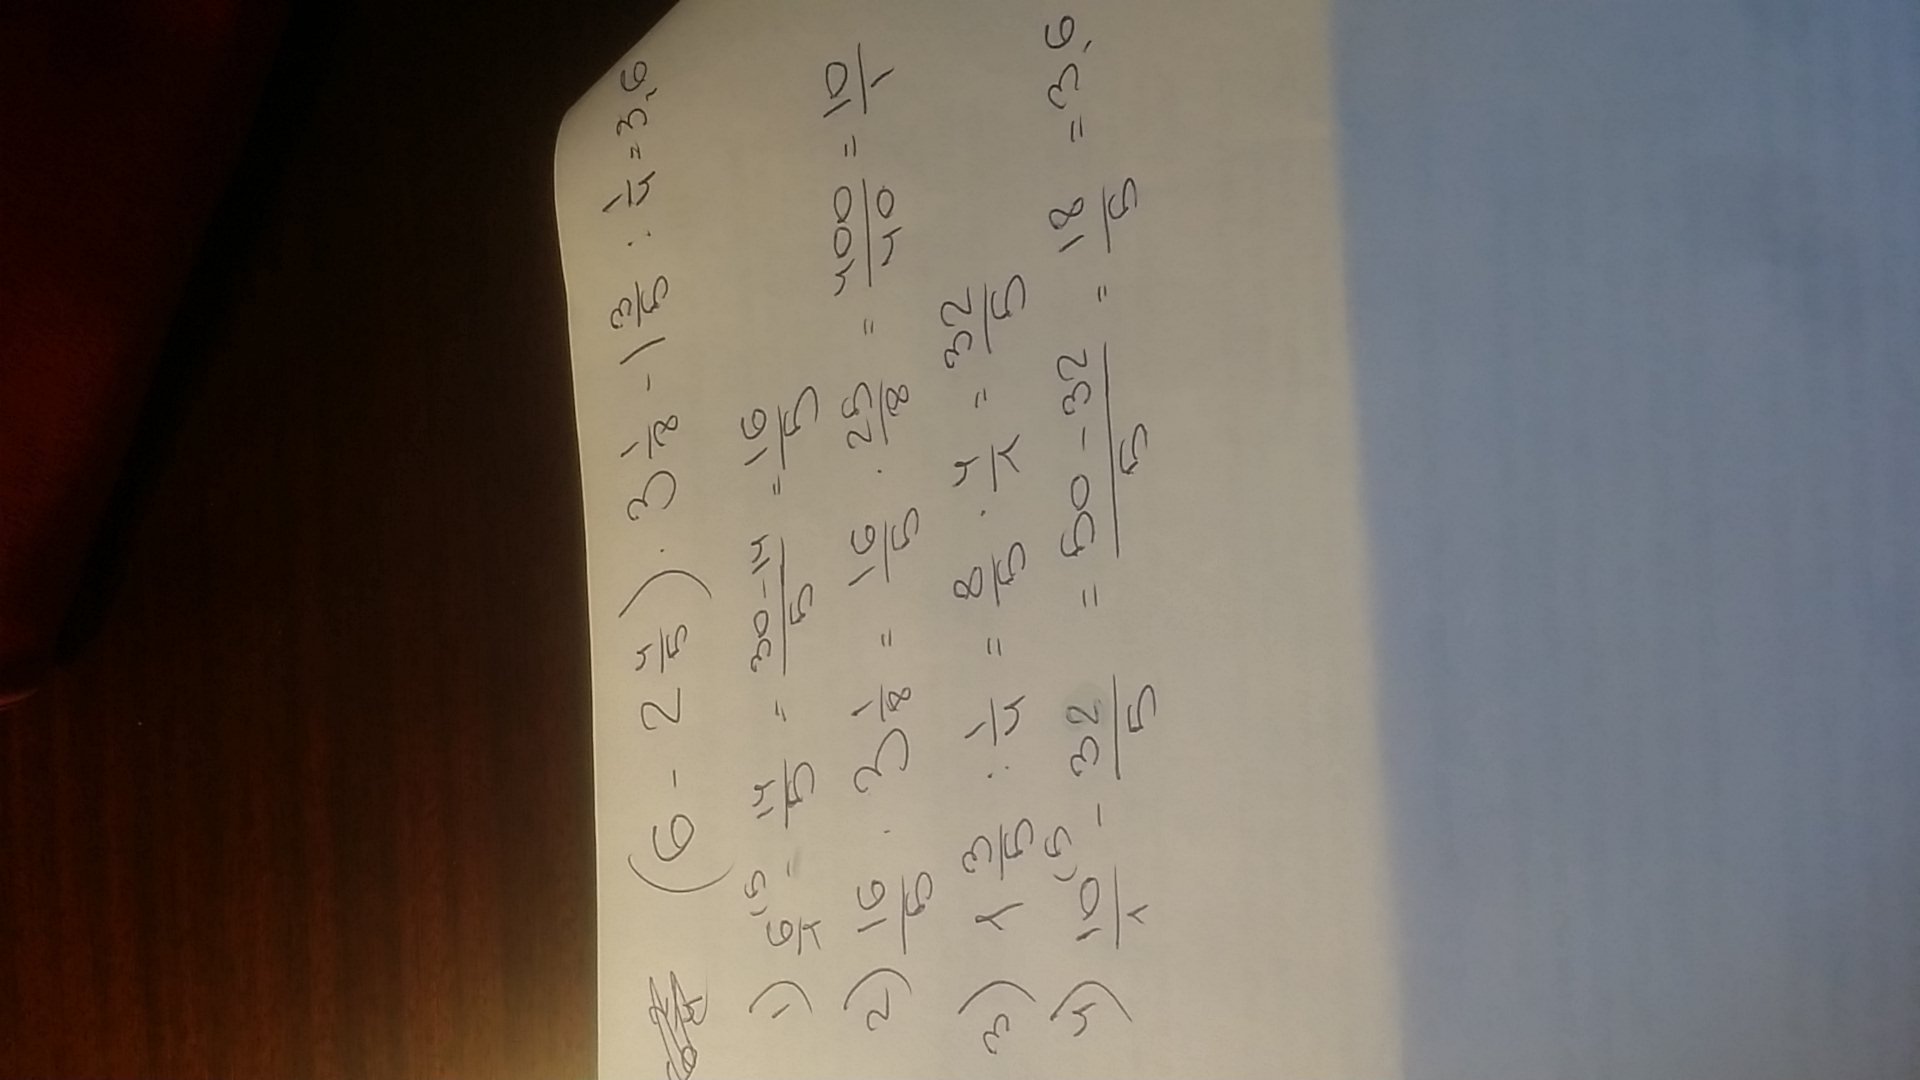 (6 - 2 4/5) · 3 1/8 - 1 3/5 : 1/4 = 3,6
1) 6/1 (5 = 14/5 = 30-14/5 = 16/5
2) 16/5 · 3 1/8 = 16/5 · 25/8 = 400/40 = 10/1
3) 1 3/5 : 1/4 = 8/5 · 4/1 = 32/5
4) 10/1 (5 - 32/5 = 50-32/5 = 18/5 = 3,6